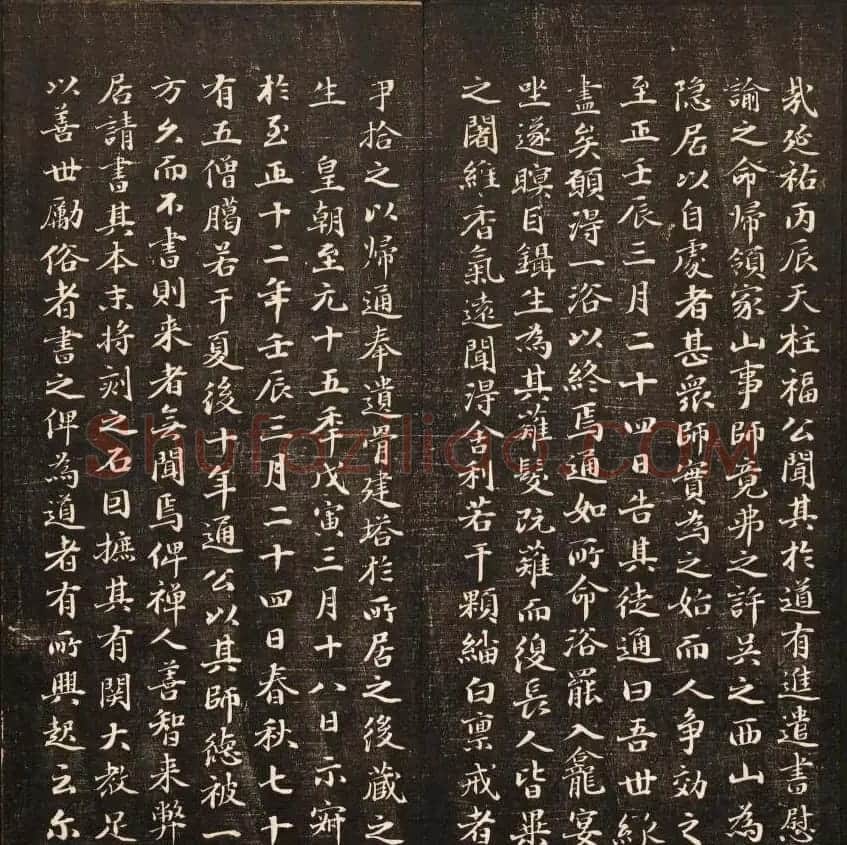 哉延祐丙辰天柱福公聞其於道有進遣書慰
諭之命歸領家山事師竟弗之許吳之西山為
隱居以自處者甚眾師實為之始而人争效之
至正壬辰三月二十四日告其徒通曰吾世緣
盡矣願淂一浴以終焉通如所命浴罷入龕宴
坐遂瞑目鑷生為其薙髮既薙而復長人皆異
之闍維香氣遠聞淂舍利若干顆緇白禀戒者
尹拾之以歸通奉遺骨建塔於所居之後藏之
生 皇朝至元十五年戊寅三月十八日示寂
於至正十二年壬辰三月二十四日春秋七十
有五僧臈若干夏後十年通公以其師德被一
方久而不書則来者無聞焉俾禅人善智来弊
居請書其本末将刻之石囙摭其有関大教足
以善世勵俗者書之俾為道者有所興起云尒
Shufaziliao.COM